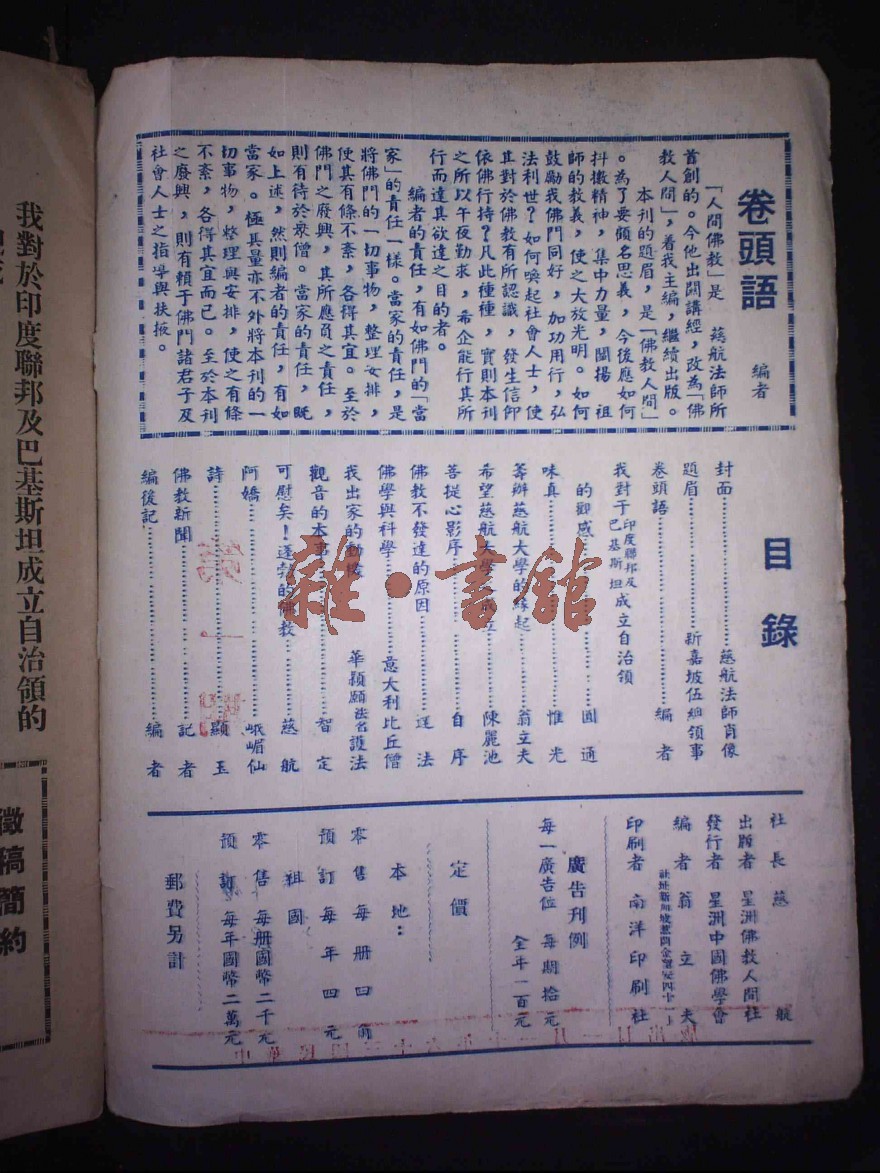 卷頭語
編者
「人間佛教」是　慈航法師所
首創的。今他出關講經，改為「佛
教人間」，着我主編，繼續出版。
本刊的題眉，是「佛教人間」
。為了要顧名思義，今後應如何
抖擻精神，集中力量，闡揚　祖
師的教義，使之大放光明。如何
鼓勵我佛門同好，加功用行，弘
法利世？如何喚起社會人士，使
其對於佛教有所認識，發生信仰
依佛行持？凡此種種，實則本刊
之所以午夜勤求，希企能行其所
行而達其欲達之目的者。
編者的責任，有如佛門的「當
家」的責任一樣。當家的責任，是
將佛門的一切事物，整理安排，
使其有條不紊，各得其宜。至於
佛門之廢興，其所應負之責任，
則有待於衆僧。當家的責任，既
如上述，然則編者的責任，有如
當家。極其量亦不外將本刊的一
切事物，整理與安排，使之有條
不紊，各得其宜而已。至於本刊
之廢興，則有賴于佛門諸君子及
社會人士之指導與扶掖。
目錄
封面……慈航法師肖像
題眉……新嘉坡伍總領事
卷頭語……編者
我對于印度聯邦及巴基斯坦成立自治領
的觀感……圓通
味真……惟光
籌辦慈航大學的緣起……翁立夫
希望慈航大學　成立……陳麗池
菩提心影序……自序
佛教不發達的原因……達法
佛學與科學……意大利比丘僧
我出家的動機　華穎願法名護法
觀音的本事……智定
可慰矣！蓬勃的佛教……慈航
阿嬌……峨嵋仙
詩……顯玉
佛教新聞……記者
編後記……編者
社長慈航
出版者　星洲佛教人間社
發行者　星洲中國佛學會
編者翁立夫
印刷者　南洋印刷社
廣告刊例
每一廣告位　每期拾元
全年一百元
定價
本地：
零售每册四角
預訂每年四元
祖國
零售　每册國幣二千元
預訂　每年國幣二萬元
郵費另計
中華民國三十六年十一月一日出版
雜·書館
我對於印度聯邦及巴基斯坦成立自治領的
徵稿簡約